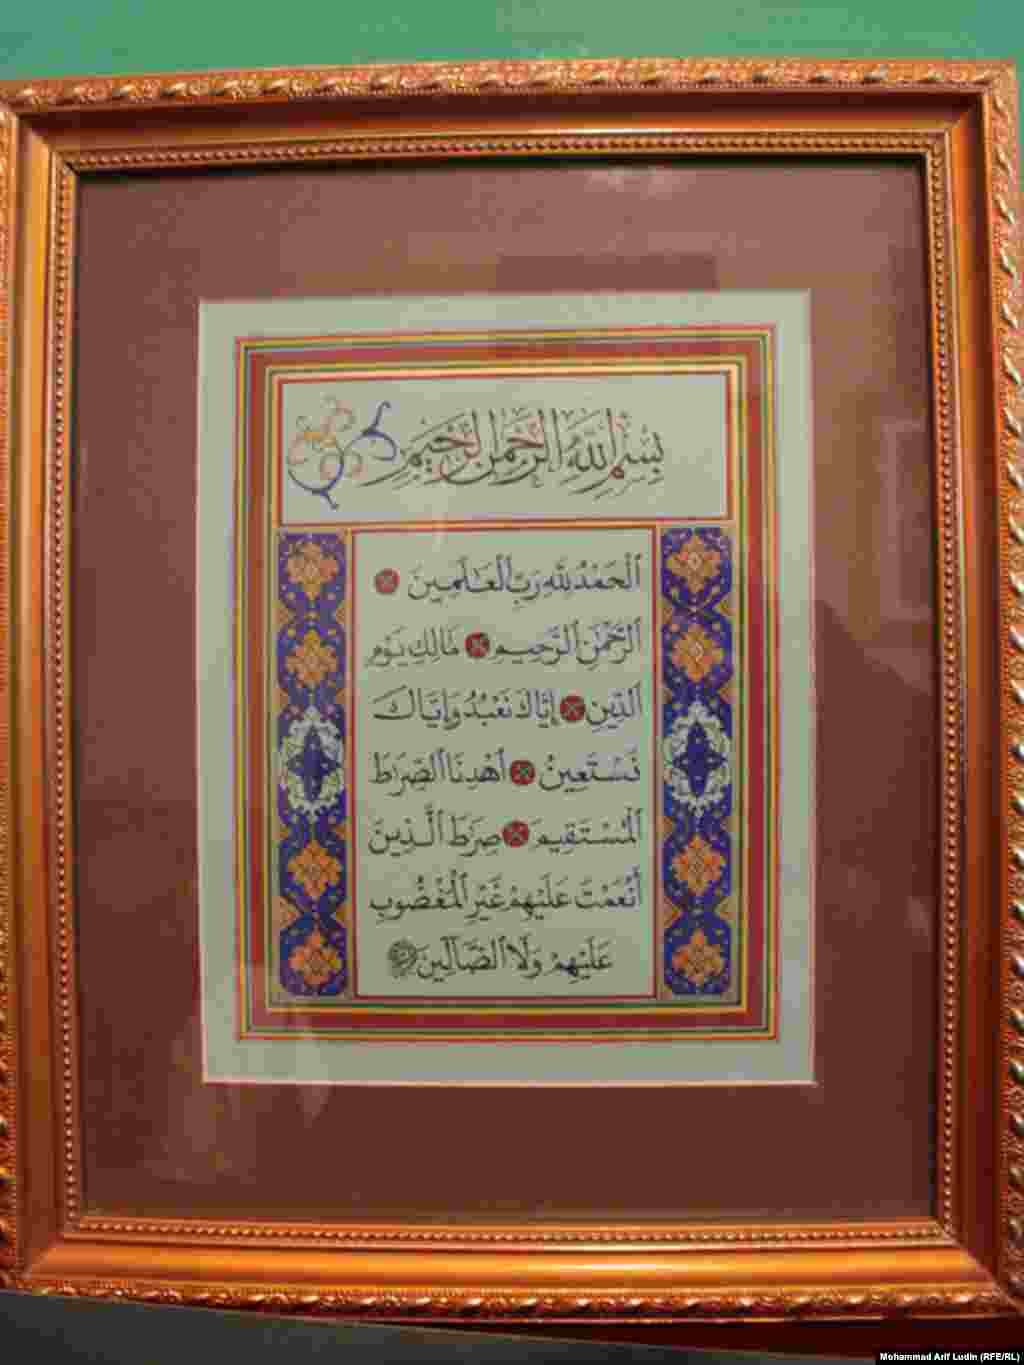 بِسْمِ اللَّهِ الرَّحْمٰنِ الرَّحِيمِ
اَلْحَمْدُ لِلَّهِ رَبِّ الْعَالَمِينَ
اَلرَّحْمٰنِ الرَّحِيمِ مَالِكِ يَوْمِ
الدِّينِ إِيَّاكَ نَعْبُدُ وَإِيَّاكَ
نَسْتَعِينُ اهْدِنَا الصِّرَاطَ
الْمُسْتَقِيمَ صِرَاطَ الَّذِينَ
أَنْعَمْتَ عَلَيْهِمْ غَيْرِ الْمَغْضُوبِ
عَلَيْهِمْ وَلَا الضَّآلِّينَ
Mohammad Arif Ludin (RFE/RL)